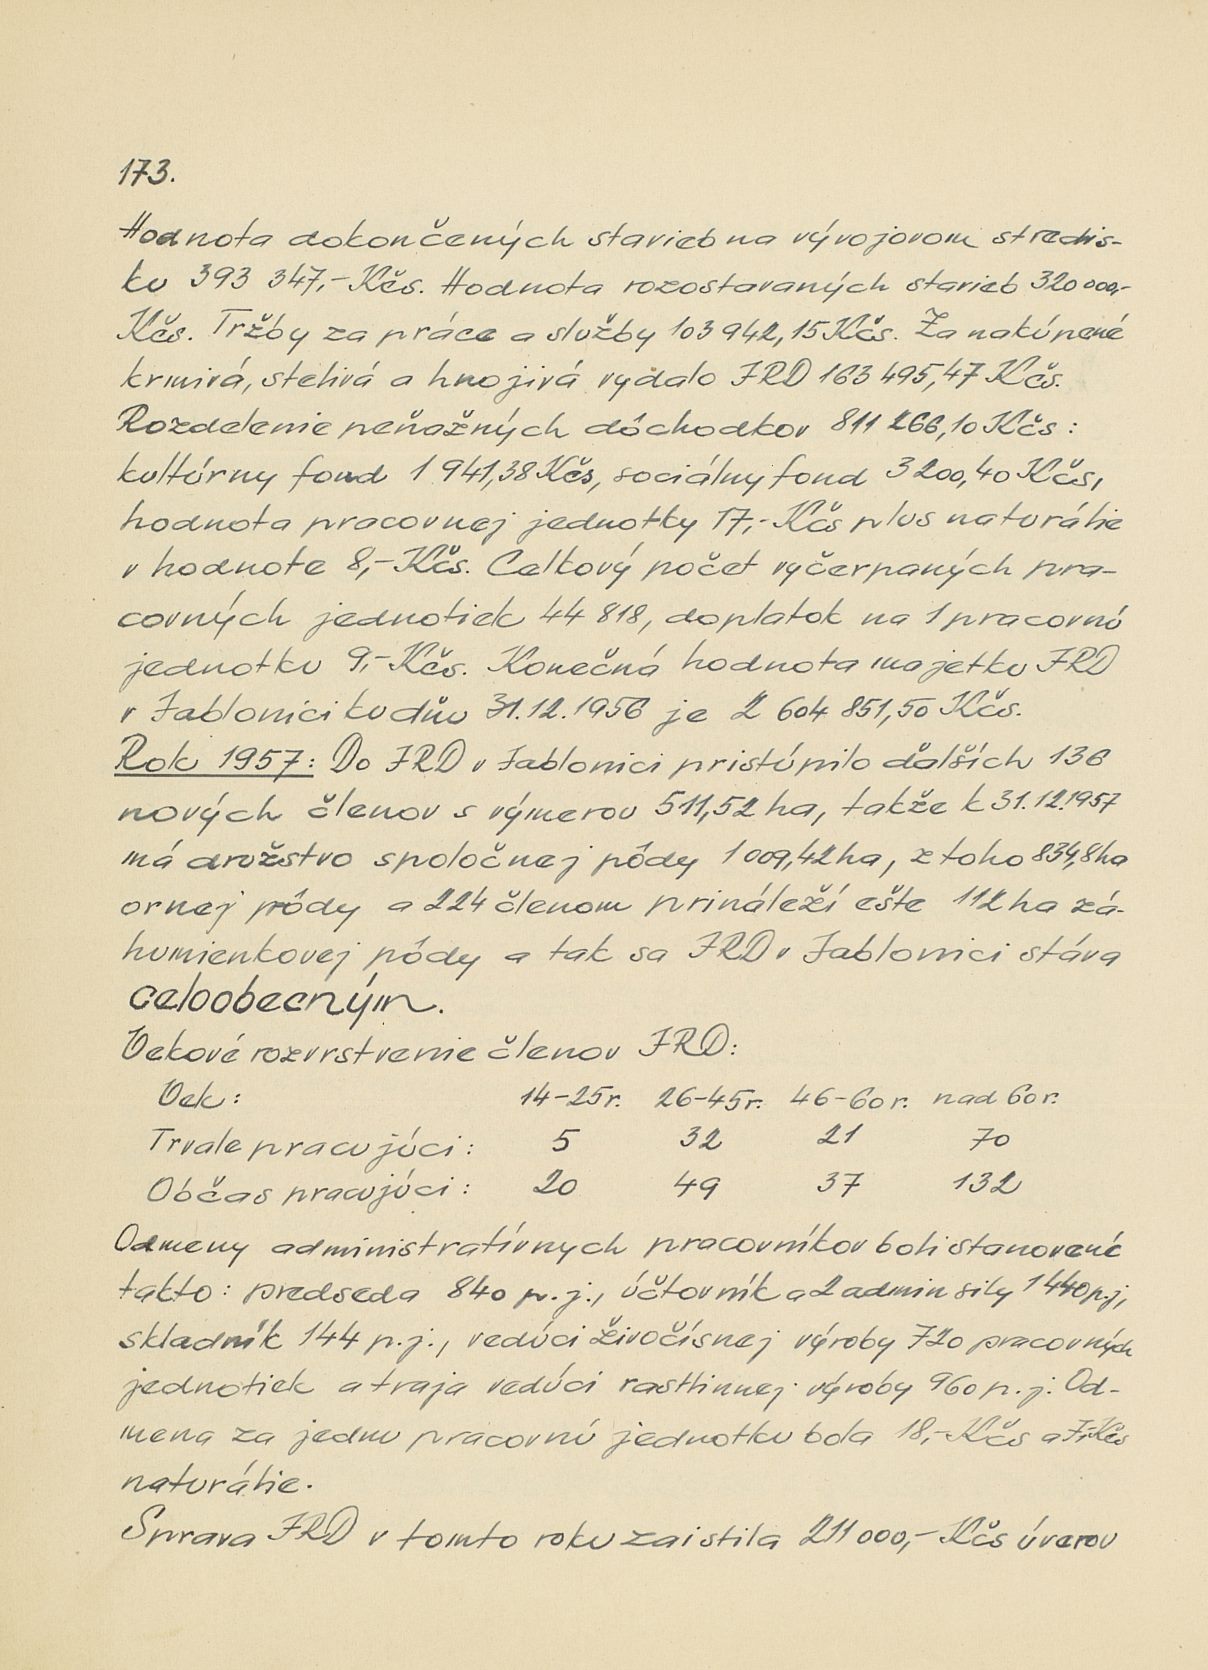 173.
Hodnota dokončených stavieb na vývojovom stredis-
ku 393 347,- Kčs. Hodnota rozostavaných stavieb 320 000,-
Kčs. Tržby za práce a služby 103 942,15 Kčs. Za nakúpené
krmivá, stelivá a hnojivá vydalo JRD 163 495,47 Kčs.
Rozdelenie peňažných dôchodkov 811 266,10 Kčs:
kultúrny fond 1 941,38 Kčs, sociálny fond 3 200,40 Kčs,
hodnota pracovnej jednotky 17,- Kčs plus naturálie
v hodnote 8,- Kčs. Celkový počet vyčerpaných pra-
covných jednotiek 44 818, doplatok na 1 pracovnú
jednotku 9,- Kčs. Konečná hodnota majetku JRD
v Jablonici ku dňu 31.12.1956 je 2 604 851,50 Kčs.
Rok 1957: Do JRD v Jablonici pristúpilo ďalších 136
nových členov s výmerou 511,52 ha, takže k 31.12.1957
má družstvo spoločnej pôdy 1 009,42 ha, z toho 834,8 ha
ornej pôdy a 224 členom prináleží ešte 112 ha zá-
humienkovej pôdy a tak sa JRD v Jablonici stáva
celoobecným.
Vekové rozvrstvenie členov JRD:
Vek: 14-25 r. 26-45 r. 46-60 r. nad 60 r.
Trvale pracujúci: 5 32 21 70
Občas pracujúci: 20 49 37 132
Odmeny administratívnych pracovníkov boli stanovené
takto: predseda 840 p.j., účtovník a 2 admin sily 1 440 p.j,
skladník 144 p.j., vedúci živočísnej výroby 720 pracovných
jednotiek a traja vedúci rastlinnej výroby 960 p.j. Od-
mena za jednu pracovnú jednotku bola 18,- Kčs a 7,- Kčs
naturálie.
Správa JRD v tomto roku zaistila 211 000,- Kčs úverov